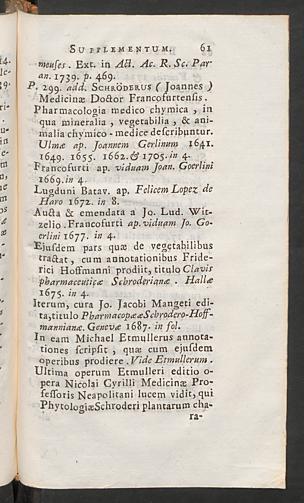 SUPPLEMENTUM. 61
meuses. Ext. in Act. Ac. R. Sc. Par
an. 1739. p. 469.
P. 299. add. SCHRÖDERUS ( Joannes )
Medicinæ Doctor Francofurtensis.
Pharmacologia medico chymica, in
qua mineralia, vegetabilia, & ani-
malia chymico-medice describuntur.
Ulmæ ap. Joannem Gerlinum 1641.
1649. 1655. 1662. & 1705. in 4.
Francofurti ap. viduam Joan. Goerlini
1669. in 4.
Lugduni Batav. ap. Felicem Lopez de
Haro 1672. in 8.
Aucta & emendata a Jo. Lud. Wit-
zelio. Francofurti ap. viduam Jo. Go-
erlini 1677. in 4.
Ejusdem pars quæ de vegetabilibus
tractat, cum annotationibus Fride-
rici Hoffmanni prodiit, titulo Clavis
pharmaceuticæ Schroderianæ. Hallæ
1675. in 4.
Iterum, cura Jo. Jacobi Mangeti edi-
ta, titulo Pharmacopææ Schrodero-Hoff-
mannianæ. Genevæ 1687. in fol.
In eam Michael Etmullerus annota-
tiones scripsit, quæ cum ejusdem
operibus prodiere. Vide Etmullerum.
Ultima operum Etmulleri editio o-
pera Nicolai Cyrilli Medicinæ Pro-
fessoris Neapolitani lucem vidit, qui
Phytologiæ Schroderi plantarum cha-
ra-